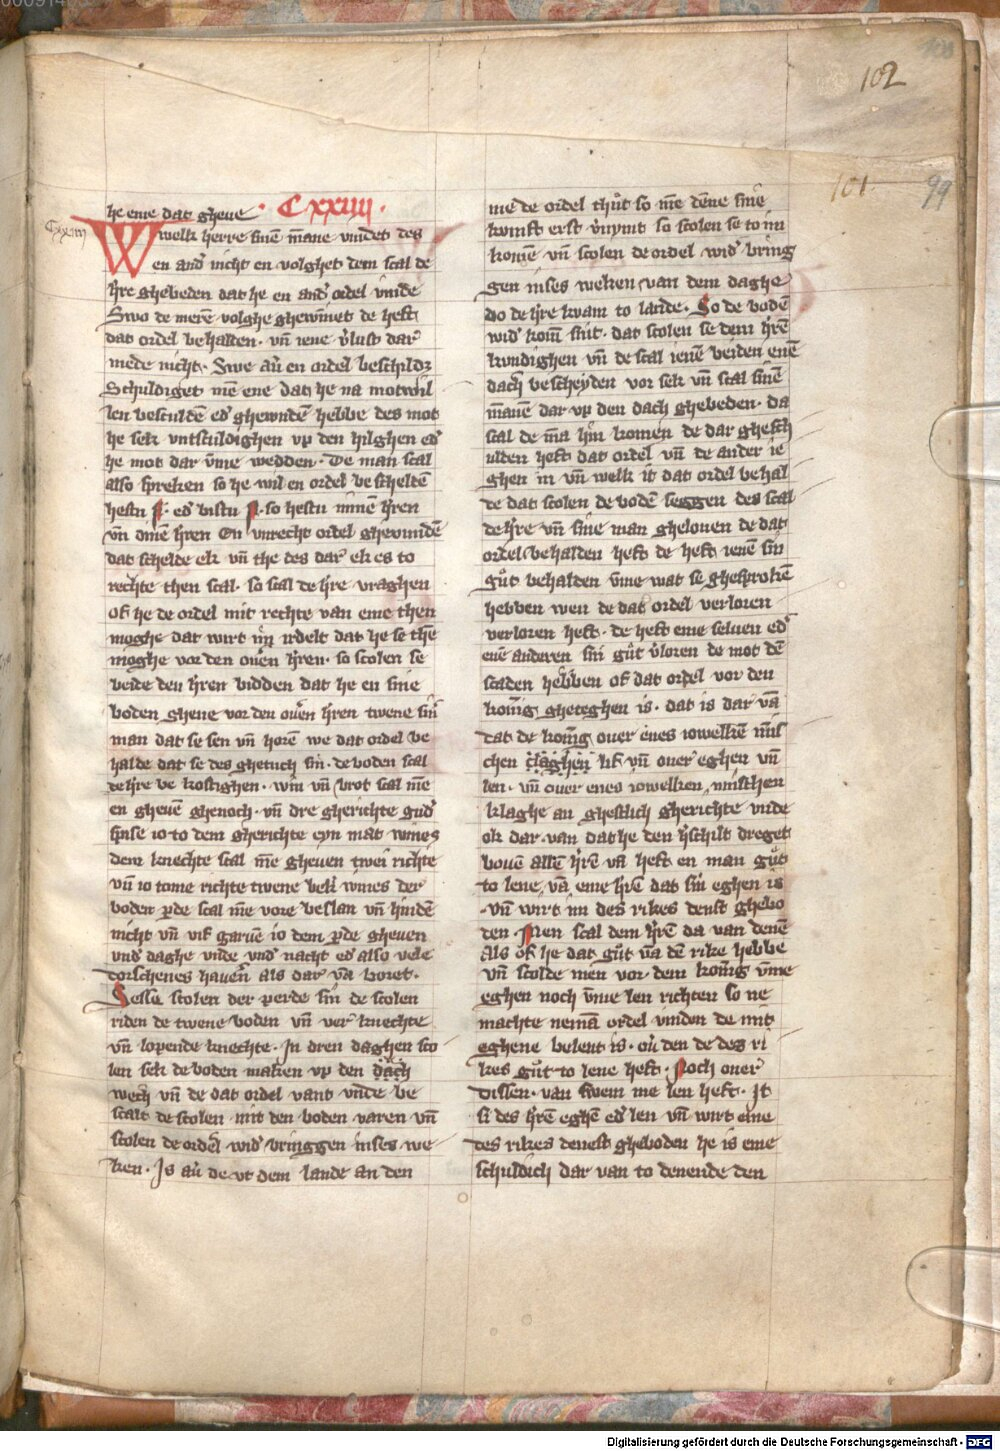 102
101
99
he eme dat gheue · Cxxiiii ·
Cxxiiii
Welk herre sinē māne vindet des
en and̉ nicht en volghet dem scal de
h̄re ghebeden dat he en and̉ ordel vinde
Swo de merē volghe ghewīnet de heft
dat ordel behalden · vn̄ iene v̉lust dar
mede nicht · Swe aủ en ordel beschildꝫ
Schuldiget mē ene dat he na motwil
len besculdē ed̉ ghewndē hebbe des mot
he sek vntsculdighen vp den hilghen ed̉
he mot dar v̄me wedden · De man scal
also spreken so he wil en ordel bescheldē
hestu ed̉ bistu so hestu minē h̄ren
vn̄ dinē h̄ren En vnrecht ordel gheuundē
dat schelde ek vn̄ the des dar ek es to
rechte then scal · so scal de h̄re vraghen
oft he de ordel mit rechte van eme then
moghe dat wirt īm irdelt dat he se thē
moghe vor den oủen h̄ren · so scolen se
beide den h̄ren bidden dat he en sine
boden gheue vor den oủen h̄ren twene sin̄
man dat se sen vn̄ horē we dat ordel be
halde dat se des ghetuch sin · de boden scal
de h̄re be kostighen · win vn̄ brot scal mē
en gheuē ghenoch · vn̄ dre gherichte gud̉
spise io to dem gherichte eyn mat wines
dem knechte scal mē gheuen twei richte
vn̄ io tome richte twene bek̉ wines der
boden ꝑde scal mē vore beslan vn̄ hindē
nicht vn̄ vif garuē io dem ꝑde gheuen
vnd̉ daghe vnde vnd̉ nacht ed̉ also vele
dorschenes hauerē als dar vā boret ·
Sesse scolen der perde sin de scolen
riden de twene boden vn̄ ver̉ knechte
vn̄ lopende knechte · In dren daghen sco
len sek de boden maken vp den dach
wech vn̄ de dat ordel vant vnde be
scalt de scolen mit den boden varen vn̄
scolen de ordel wid̉ bringgen inses we
ken · Is aủ de vt dem lande an den
me de ordel thut so mē dēne sine
kumst erst v̉nymt so scolen se to im
komē vn̄ scolen de ordel wid̉ bring
gen inses weken van dem daghe
do de h̄re kwam to lande · So de bodē
wid̉ komē sint · dat scolen se dem h̄rē
kundighen vn̄ de scal ienē beiden enē
dach bescheyden vor sek vn̄ scal sinē
mānē dar vp den dach ghebeden · da
scal de mā hin komen de dar ghesch
ulden heft dat ordel vn̄ de ander ie
ghen in vn̄ welk it dat ordel behal
de dat scolen de bodē seggen des scal
de h̄re vn̄ sine man ghelouen de dat
ordel behalden heft de heft ienē sin
gůt behalden v̄me wat se ghesprokē
hebben wen de dat ordel verloren
verloren heft · de heft eme seluen ed̉
enē anderen sin gůt v̉loren de mot dē
scaden hebben of dat ordel vor den
konīg gheteghen is · dat is dar vā
dat de konīg ouer enes iowelkē mīs
chen claghen lif vn̄ ouer eghen vn̄
len · vn̄ ouer enes iowelken mischen
klaghe an ghestlich gherichte vnde
ok dar · van dat he den h̉schilt dreget
bouē allē h̄rē vā heft en man gůt
to lene vā eme h̄rē dat sin eghen is
· vn̄ wirt im des rikes denst ghebo
den · Men scal dem h̄rē da van denē
Als of he dat gůt vā dē rike hebbe
vn̄ scolde men vor dem konīg v̄me
eghen noch v̄me len richten so ne
machte nemā ordel vinden de mit
eghene belent is · oủ den de des ri
kes gůt to lene heft · Noch ouer
dissen · van swem me len heft · It
si des h̄rē eghē ed̉ len vn̄ wirt eme
des rikes denest gheboden he is eme
schuldich dar van to denende den
Digitalisierung gefördert durch die Deutsche Forschungsgemeinschaft - DFG